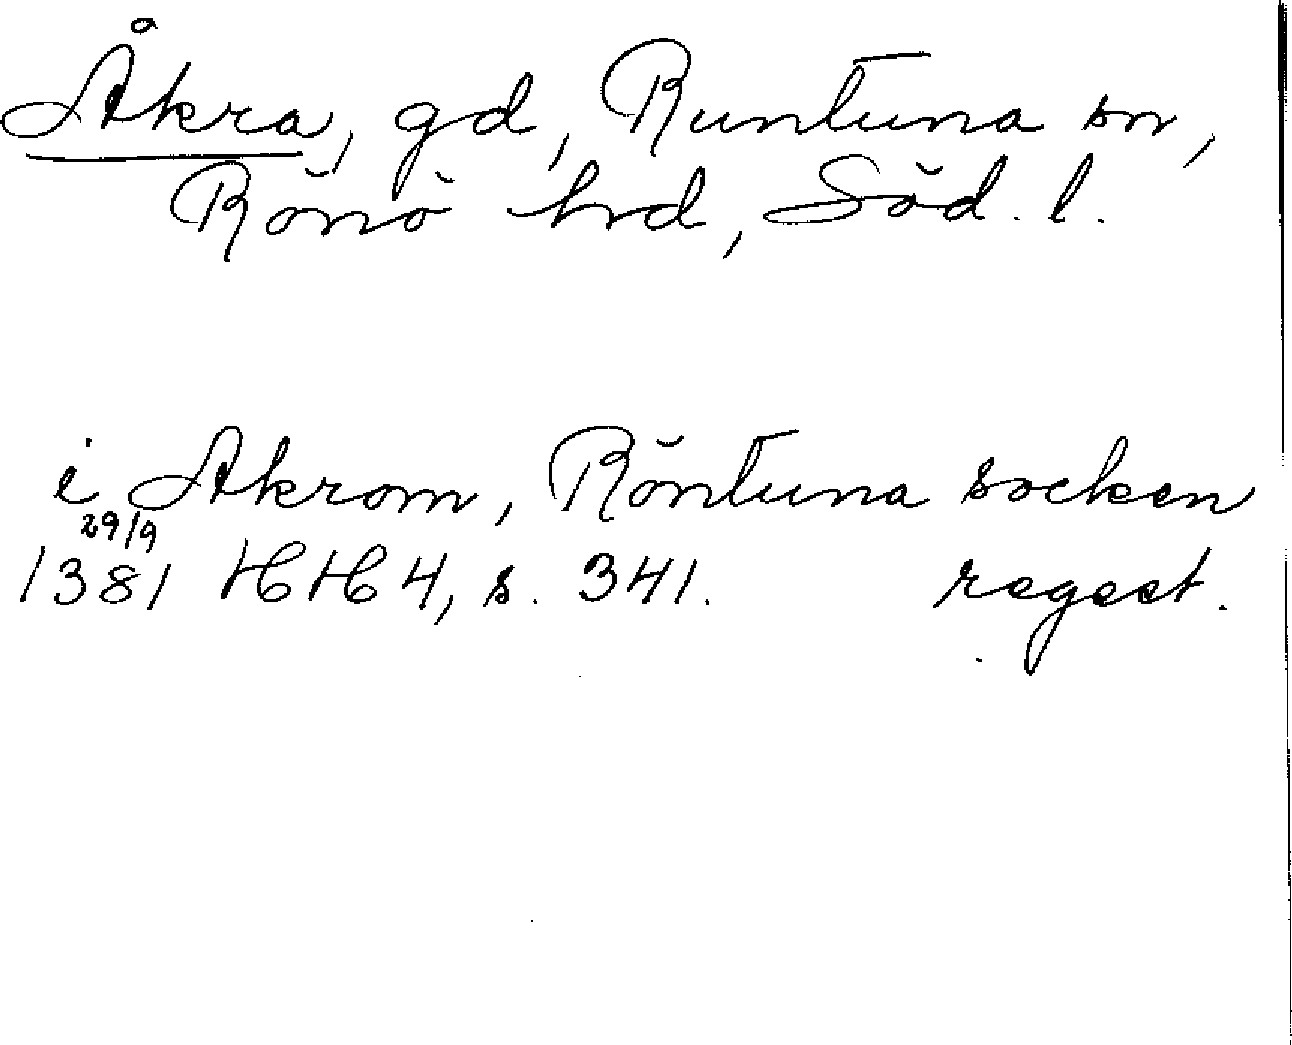 Åkra, gd, Runtuna sn,
Rönö hrd, Söd. l.
i Akrom, Röntuna socken
29/9
1381 HH 4, s. 341. regest.